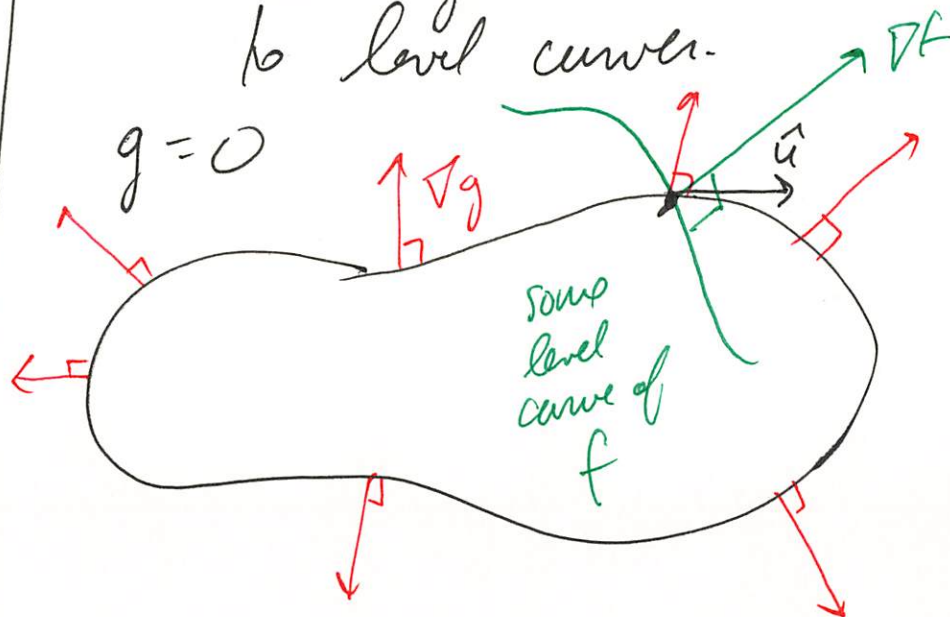 to level curves.
∇f
g = 0
û
∇g
some
level
curve of
f